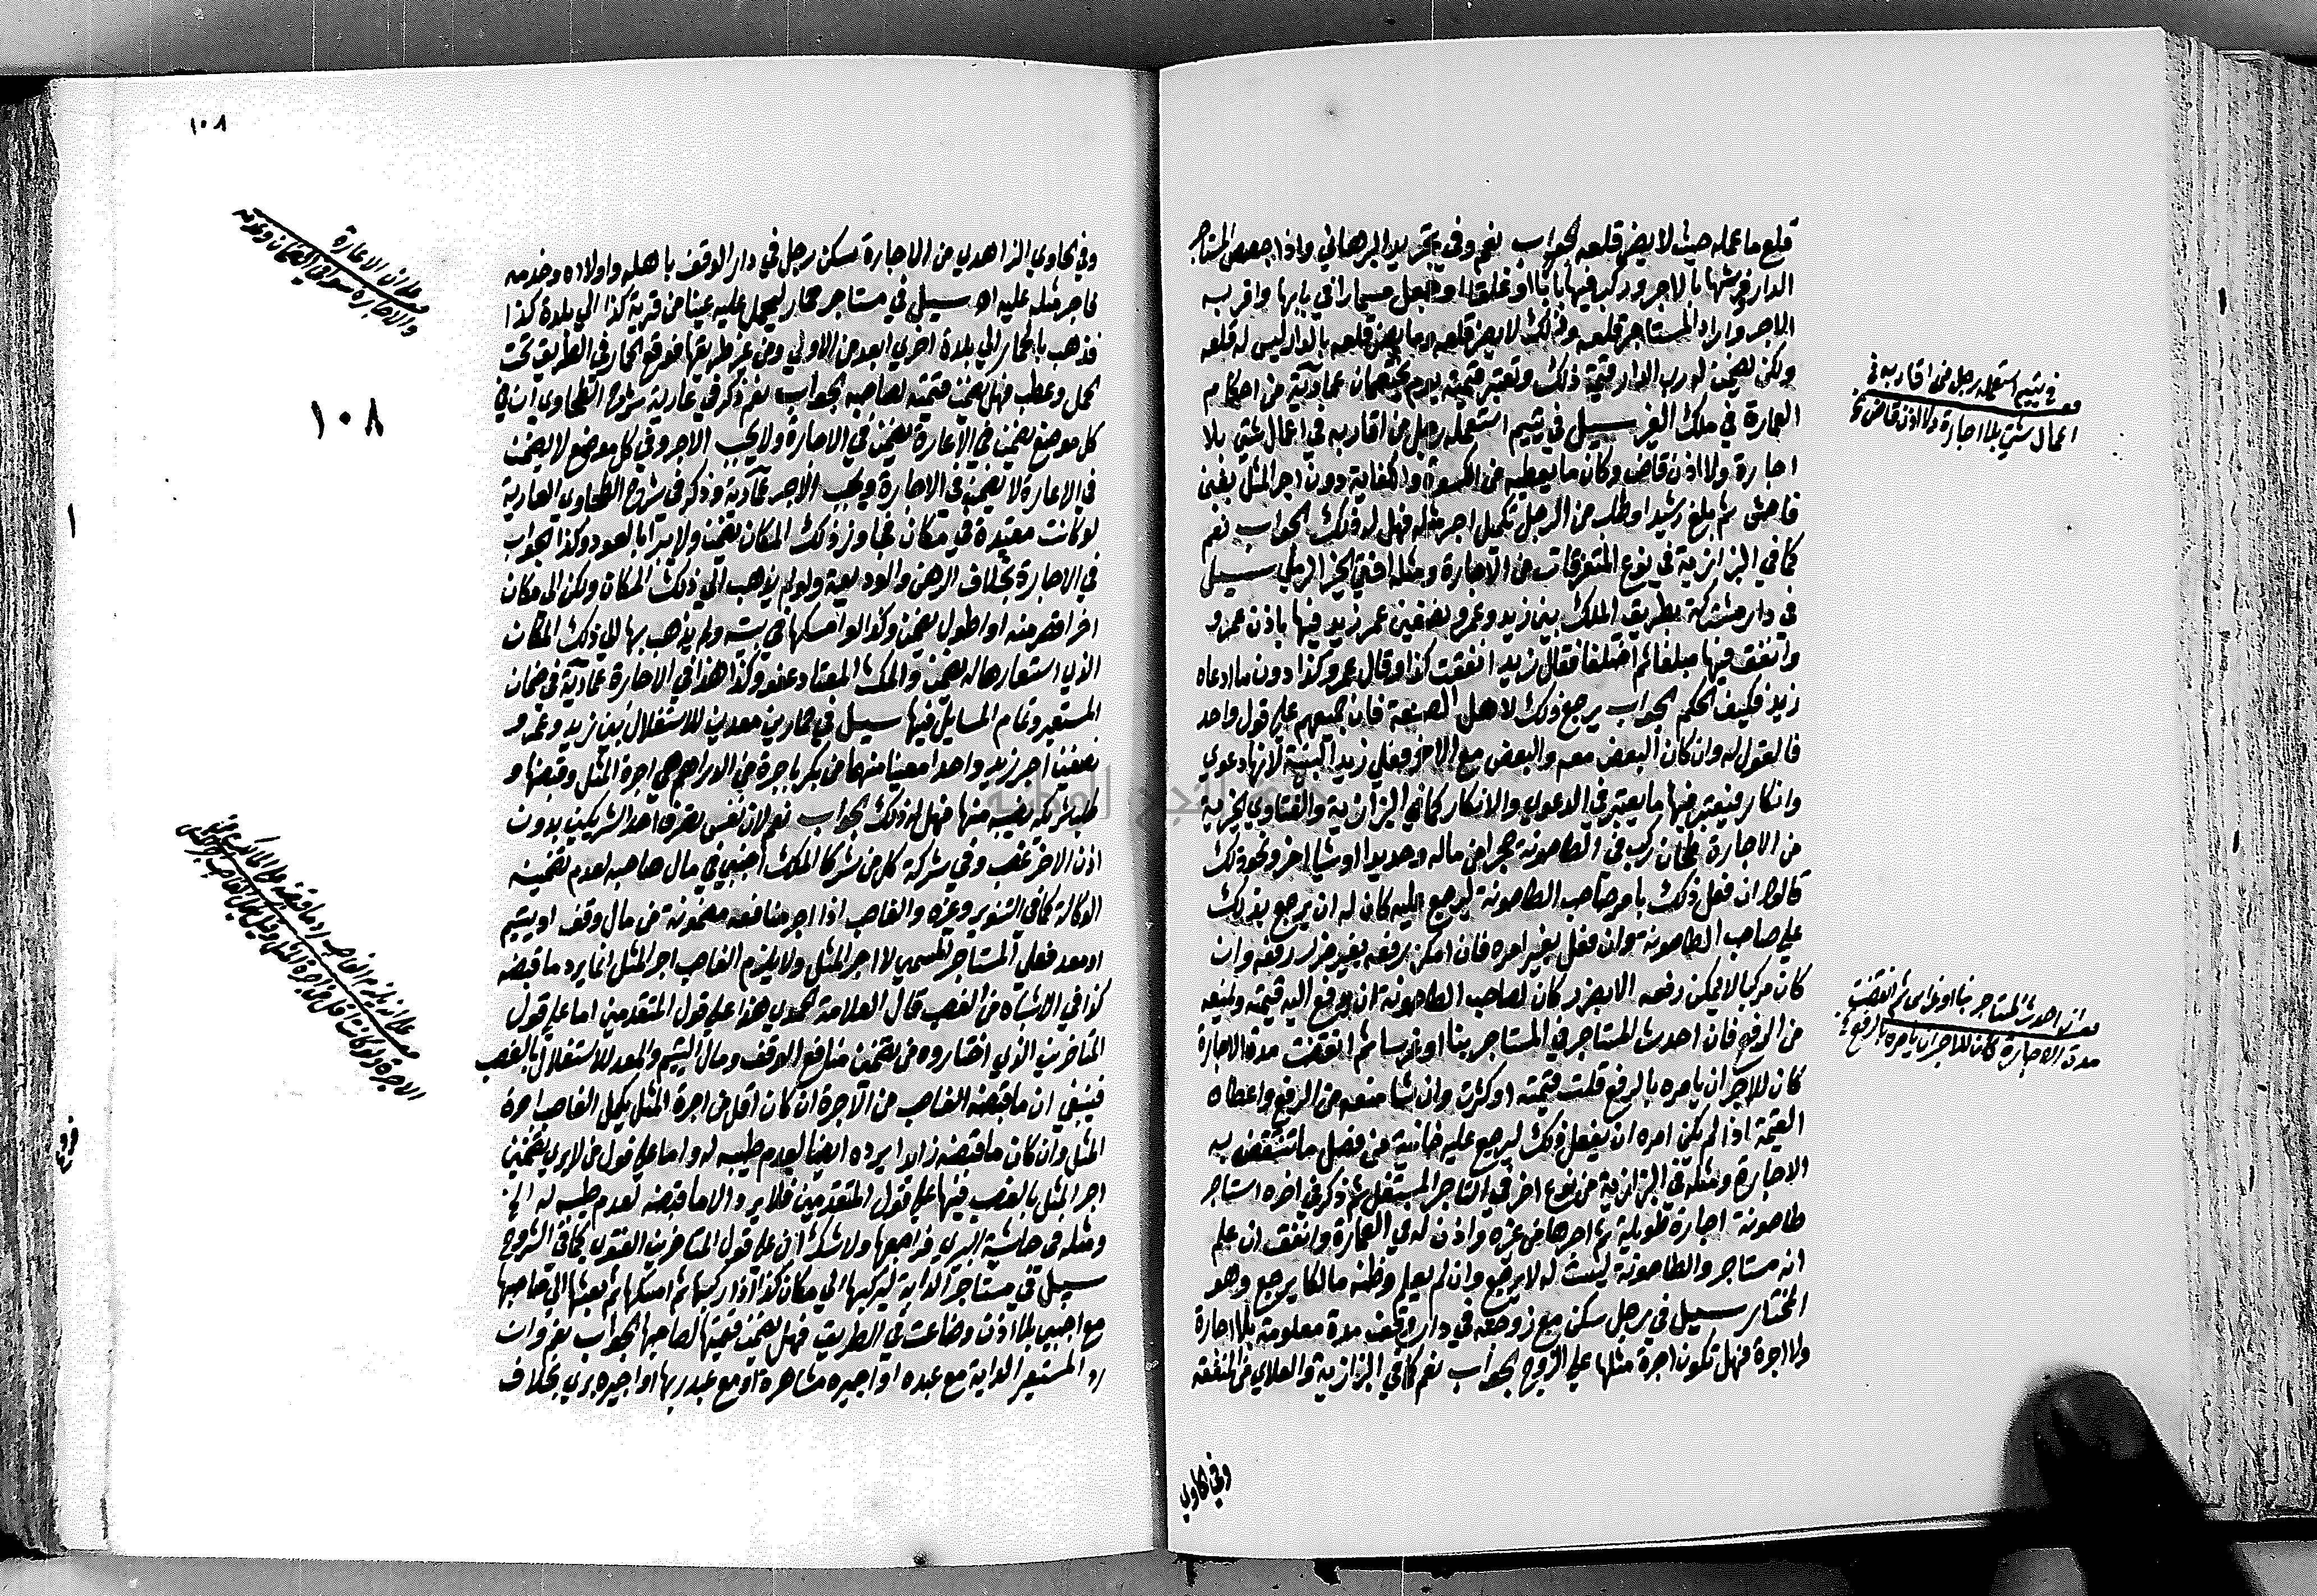 قلع ما عمله حيث لا يضر قلعه الجواب نعم وفي تجريد البرهاني واذا جصص المستاجر
الدار وفرشها بالاجر وركب فيها بابا او غلقا او جعل مسمارا في بابها واقر به
الاجر واراد المستاجر قلعه وذلك لا يضر قلعه وما يضر قلعه بالدار ليس له قلعه
ولكن يضمن له رب الدار قيمة ذلك وتعتبر قيمته يوم يختصمان عمادية من احكام
العمارة في ملك الغير سئل في يتيم استعمله رجل من اقاربه في اعمال شتى بلا
اجارة ولا اذن قاض وكان ما يعطيه من الكسوة والكفاية دون اجر المثل بغبن
فاحش ثم بلغ رشيدا وطلب من الرجل تكميل اجر مثله فهل له ذلك الجواب نعم
كما في البزازية في نوع المتفرقات من الاجارة ومثله افتى الخير الرملي سئل
في دار مشتركة بطريق الملك بين زيد وعمرو نصفين عمر زيد فيها باذن عمرو
وانفق فيها مبلغا ثم اختلفا فقال زيد انفقت كذا وقال عمرو كذا دون ما ادعاه
زيد فكيف الحكم الجواب يرجع ذلك لاهل الصنعة فان جميعهم على قول واحد
فالقول له وان كان البعض معه والبعض مع الاخر فعلى زيد البينة لانها دعوي
وانكار فيعتبر فيها ما يعتبر في الدعوي والانكار كما في البزازية والفتاوي الخيرية
من الاجارة طحان ركب في الطاحونة حجرا من ماله وحديدا او شيا اخر ونحو ذلك
قالوا ان فعل ذلك بامر صاحب الطاحونة ليرجع اليه كان له ان يرجع بذلك
علي صاحب الطاحونة وان فعل بغير امره فان امكن رفعه بغير ضرر رفعه وان
كان مركبا لا يمكن رفعه الا بضرر كان لصاحب الطاحونة ان يدفع اليه قيمته ويمنعه
من الرفع فان احدث المستاجر في المستاجر بنا او غرسا ثم انقضت مدة الاجارة
كان للاجر ان يامره بالرفع قلت قيمته او كثرت وان شا منعه من الرفع واعطاه
القيمة اذا لم يكن امره ان يفعل ذلك ليرجع عليه خانية من فصل ما تنتقض به
الاجارة ومثله في البزازية من نوع اخر في المستاجر المستغل ثم ذكر في اخره استاجر
طاحونة اجارة طويلة ثم اجرها من غيره واذن له في العمارة وانفق ان علم
انه مستاجر والطاحونة ليست له لا يرجع وان لم يعلم وظنه مالكا يرجع وهو
المختار سئل في رجل سكن مع زوجته في دار وقف مدة معلومة بلا اجارة
ولا اجرة فهل تكون اجرة مثلها علي الزوج الجواب نعم كما في البزازية والعلاي من النفقة
وفي الحاوي
في يتيم استعمله رجل من اقاربه في
اعمال شتى بلا اجارة ولا اذن قاض
احدث المستاجر بنا او غراس ثم انقضت
مدة الاجارة كان للاجر ان يامره بالرفع
١٠٨
١٠٨
وفي الحاوي الزاهدي من الاجارة سكن رجل في دار الوقف باهله واولاده وخدمه
فاجر مثله عليه اه سئل في مستاجر حمار ليحمل عليه عينا من قرية كذا الي بلدة كذا
فذهب بالحمار الي بلدة اخري ابعد من الاولي ومن غير طريقها فوقع الحمار في الطريق تحت
الحمل وعطب فهل يضمن قيمته لصاحبه الجواب نعم ذكر في عارية شرح الطحاوي ان في
كل موضع يضمن في الاعارة يضمن في الاجارة ولا يجب الاجر وفي كل موضع لا يضمن
في الاعارة لا يضمن في الاجارة ويجب الاجر عمادية وذكر في شروح الطحاوي العارية
لو كانت مقيدة في مكان فجاوز ذلك المكان يضمن ولا يبرا بالعود وكذا الجواب
في الاجارة بخلاف الرهن والوديعة ولو لم يذهب الي ذلك المكان ولكن الي مكان
اخر اقصر منه او اطول يضمن وكذا لو امسكها في بيته ولم يذهب بها الي ذلك المكان
الذي استعارها له يضمن والمكث المعتاد عفو وكذا هذا في الاجارة عمادية في ضمان
المستعير وتمام المسايل فيها سئل في حمارين معدين للاستغلال بين زيد وعمرو
نصفين اجر زيد واحدا معينا منهما من بكر باجرة من الدراهم هي اجرة المثل وقبضها و
طلب شريكه نصيبه منها فهل له ذلك الجواب نعم لان نفس تصرف احد الشريكين بدون
اذن الاخر غصب وفي شركة كل من شركا الملك اجنبي في مال صاحبه لعدم تضمينه
الوكالة كما في التنوير وغيره والغاصب اذا اجر منافعه مضمونة من مال وقف او يتيم
او معد فعلي المستاجر المسمي لا اجر المثل ولا يلزم الغاصب اجر المثل انما يرد ما قبضه
كذا في الاشباه من الغصب قال العلامة الحموي هذا علي قول المتقدمين اما علي قول
المتاخرين الذي اختاروه من تضمين منافع الوقف ومال اليتيم والمعد للاستغلال بالغصب
فينبغي ان ما قبضه الغاصب من الاجرة ان كان اقل من اجرة المثل يكمل الغاصب اجرة
المثل وان كان ما قبضه زايدا يرده ايضا لعدم طيبه له واما علي قول من لا يري تضمين
اجر المثل بالغصب فيها علي قول المتقدمين فلا يرد الا ما قبضه لعدم طيبه له الخ
ومثله في حاشية البيري فراجعها ولا شك ان علي قول المتاخرين الفتوي كما في الشروح
سئل في مستاجر الدابة ليركبها الي مكان كذا اذا ركبها ثم امسكها ثم بعثها الي صاحبها
مع اجنبي بلا اذن وضاعت في الطريق فهل يضمن قيمتها لصاحبها الجواب نعم وان
رد المستعير الدابة مع عبده او اجيره مشاهرة او مع عبد ربها او اجيره بري بخلاف